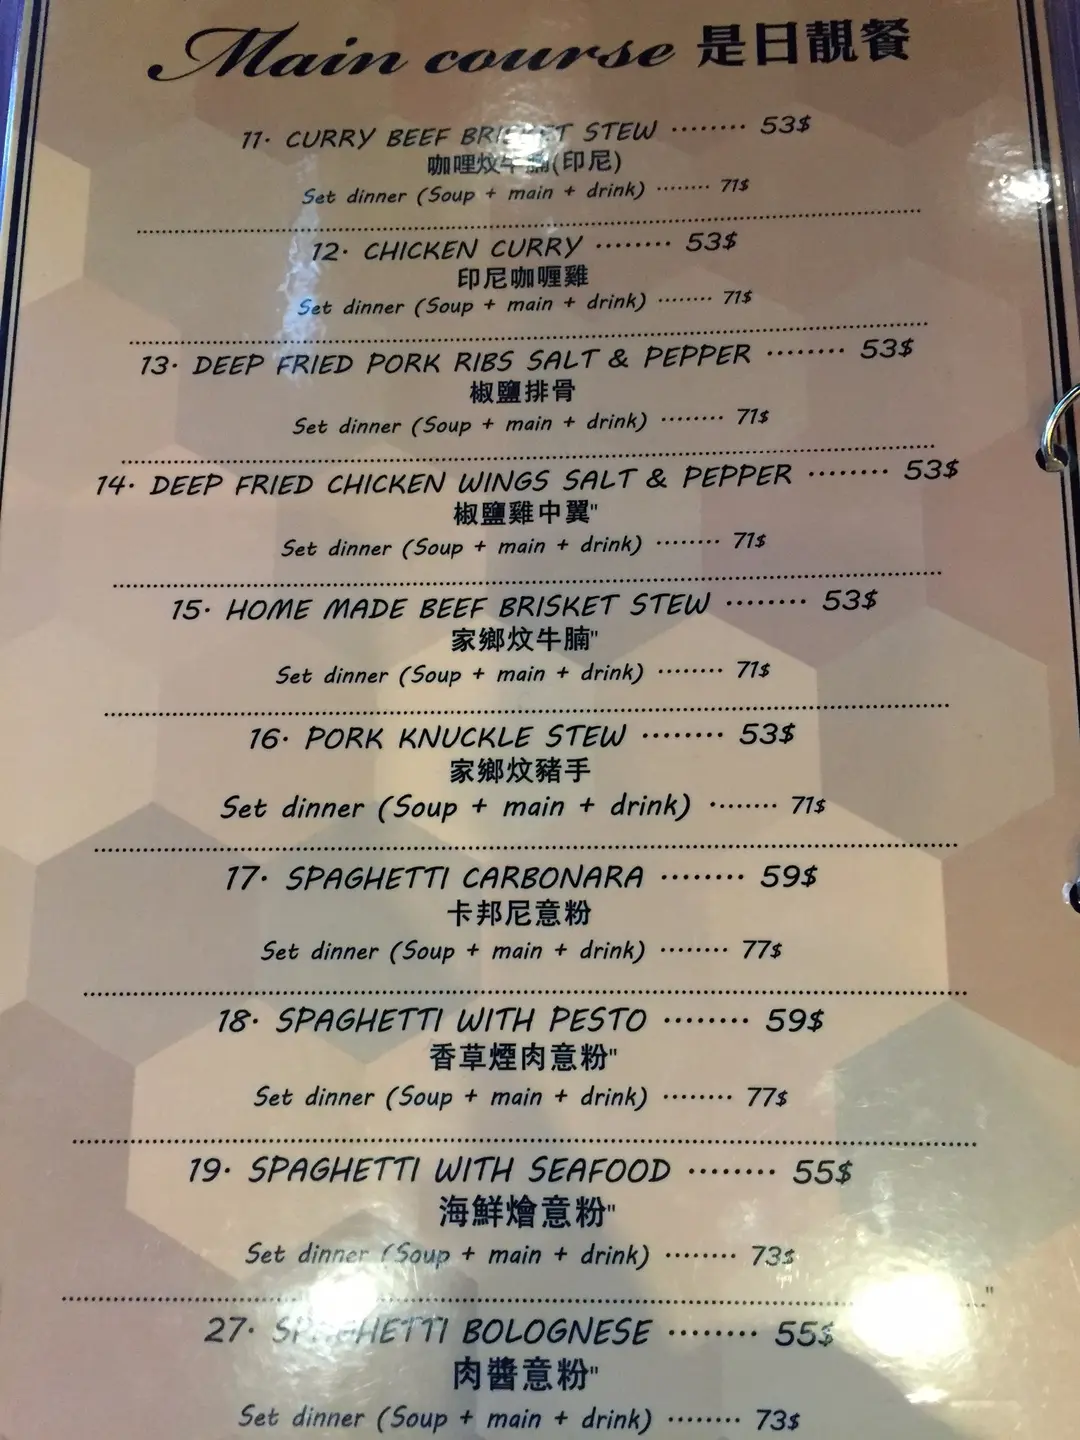 Main course 是日靚餐
11· CURRY BEEF BRISKET STEW ········ 53$
咖哩炆牛腩(印尼)
Set dinner (Soup + main + drink) ········ 71$
12· CHICKEN CURRY ········ 53$
印尼咖喱雞
Set dinner (Soup + main + drink) ········ 71$
13· DEEP FRIED PORK RIBS SALT & PEPPER ········ 53$
椒鹽排骨
Set dinner (Soup + main + drink) ········ 71$
14· DEEP FRIED CHICKEN WINGS SALT & PEPPER ········ 53$
椒鹽雞中翼"
Set dinner (Soup + main + drink) ········ 71$
15· HOME MADE BEEF BRISKET STEW ········ 53$
家鄉炆牛腩"
Set dinner (Soup + main + drink) ········ 71$
16· PORK KNUCKLE STEW ········ 53$
家鄉炆豬手
Set dinner (Soup + main + drink) ········ 71$
17· SPAGHETTI CARBONARA ········ 59$
卡邦尼意粉
Set dinner (Soup + main + drink) ········ 77$
18· SPAGHETTI WITH PESTO ········ 59$
香草煙肉意粉"
Set dinner (Soup + main + drink) ········ 77$
19· SPAGHETTI WITH SEAFOOD ········ 55$
海鮮燴意粉"
Set dinner (Soup + main + drink) ········ 73$
"
27· SPAGHETTI BOLOGNESE ········ 55$
肉醬意粉"
Set dinner (Soup + main + drink) ········ 73$